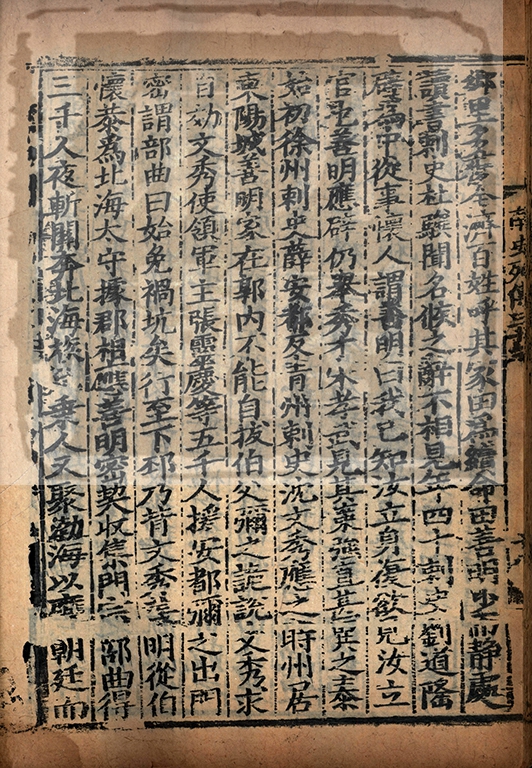 鄉里多獲全濟百姓呼其家田爲續命田善明少而靜處
讀書刺史杜驥聞名候之辭不相見年四十刺史劉道隆
辟爲中從事懷人謂善明曰我已知汝立身復欲見汝立
官也善明應辟仍舉秀才宋孝武見其策強直甚異之泰
始初徐州刺史薛安都反青州刺史沈文秀應之時州居
東陽城善明家在郭內不能自拔伯父彌之詭說文秀求
自効文秀使領軍主張靈慶等五千人援安都彌之出門
密謂部曲曰始免禍坑矣行至下邳乃背文秀善明從伯
懷恭爲北海太守據郡相應善明密契收集門宗部曲得
三千人夜斬關奔北海族兄乘人又聚勃海以應朝廷而
南史列傳